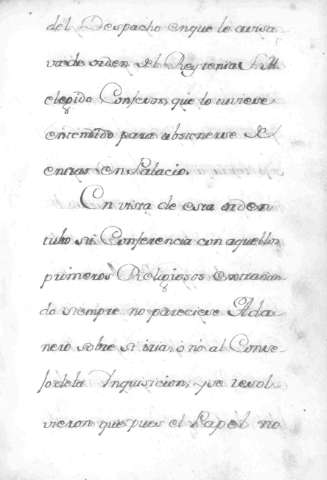 del Despacho enque le avisa
va de orden del Rey tenia S.M.
elegido Confesor, que lo tuviese
entendido para abstenerse de
entrar en Palacio.
En vista de esta orden
tubo su Conferencia con aquellos
primeros Religiosos
do siempre no pareciese Ada
nero sobre si iria, ó nó al Conse-
jo de la Inquisicion, y se resol
vieron que pues el Papel no